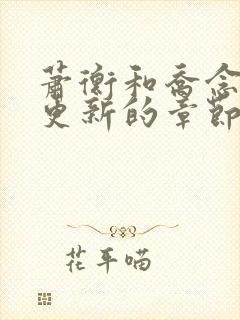 萧衡和乔念
更新的章节
花平喵